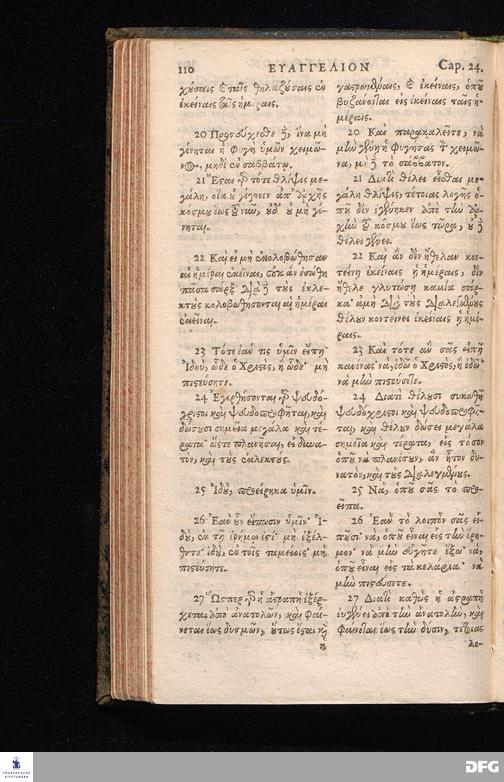 110 ΕΥΑΓΓΕΛΙΟΝ Cap. 24.
χούσαις καὶ ταῖς θηλαζούσαις ἐν
ἐκείναις ταῖς ἡμέραις.
20 Προσεύχεσθε δὲ, ἵνα μὴ
γένηται ἡ φυγὴ ὑμῶν χειμῶ-
νος, μηδὲ ἐν σαββάτῳ.
21 Ἔσται γὰρ τότε θλίψις με-
γάλη, οἵα οὐ γέγονεν ἀπ' ἀρχῆς
κόσμου ἕως τοῦ νῦν, οὐδ' οὐ μὴ γέ-
νηται.
22 Καὶ εἰ μὴ ἐκολοβώθησαν
αἱ ἡμέραι ἐκεῖναι, οὐκ ἂν ἐσώθη
πᾶσα σάρξ· Διὰ δὲ τοὺς ἐκλε-
κτοὺς κολοβωθήσονται αἱ ἡμέραι
ἐκεῖναι.
23 Τότε ἐάν τις ὑμῖν εἴπῃ·
Ἰδοὺ, ὧδε ὁ Χριστὸς, ἢ ὧδε· μὴ
πιστεύσητε.
24 Ἐγερθήσονται γὰρ ψευδό-
χριστοι καὶ ψευδοπροφῆται, καὶ
δώσουσι σημεῖα μεγάλα καὶ τέ-
ρατα· ὥστε πλανῆσαι, εἰ δυνα-
τὸν, καὶ τοὺς ἐκλεκτούς.
25 Ἰδοὺ, προείρηκα ὑμῖν.
26 Ἐὰν οὖν εἴπωσιν ὑμῖν· Ἰ-
δοὺ, ἐν τῇ ἐρήμῳ ἐστί· μὴ ἐξέλ-
θητε· ἰδοὺ, ἐν τοῖς ταμείοις· μὴ
πιστεύσητε.
27 Ὥσπερ γὰρ ἡ ἀστραπὴ ἐξέρ-
χεται ἀπὸ ἀνατολῶν, καὶ φαί-
νεται ἕως δυσμῶν, οὕτως ἔσται καὶ
ἡ
γαστρωμέναις, καὶ ἐκείναις, ὁποῦ
βυζάνονται εἰς ἐκείναις ταῖς ἡ-
μέραις.
20 Καὶ παρακαλεῖτε, νὰ
μὴν γένῃ ἡ φυγή σας τὸν χειμῶ-
να, μὴ δὲ τὸ σάββατον.
21 Διατὶ θέλει ἔσθαι με-
γάλη θλίψις, τέτοιας λογῆς ὁ-
ποῦ δὲν ἐγίνηκεν ἀπὸ τὴν ἀρ-
χὴν τοῦ κόσμου ἕως τώρα, οὐ δὲ
θέλει γένει.
22 Καὶ ἂν δὲν ἤθελαν κον-
τείνῃ ἐκείναις ᾑ ἡμέραις, δὲν
ἤθελε γλυτώσῃ καμία σάρ-
κα· ἀμὴ Διὰ τοὺς Διαλεγμένους
θέλουν κοντεύνει ἐκείναις ᾑ ἡμέ-
ραις.
23 Καὶ τότε ἂν σᾶς εἰπῇ
κανένας· νὰ, ἐδῶ ὁ Χριστὸς, ἢ ἐδῶ·
νὰ μὴν πιστεύσετε.
24 Διατὶ θέλουσι συκωθῆ
ψευδόχριστοι καὶ ψευδοπροφῆ-
ται, καὶ θέλουν δώσει μεγάλα
σημεῖα καὶ τέρατα, εἰς τόσον
ὁποῦ νὰ πλανέσουν, ἂν ἦτον δυ-
νατὸν, καὶ τοὺς Διαλεγμένους.
25 Νὰ, ὁποῦ σᾶς τὸ προ-
εῖπα.
26 Ἐὰν τὸ λοιπὸν σᾶς εἰ-
ποῦσι· νὰ, ὁποῦ εἶναι εἰς τὴν ἔρη-
μον· νὰ μὴν εὐγῆτε ἔξω· νὰ,
ὁποῦ εἶναι εἰς τὰ κελάρια· νὰ
μὴν πιστεύσετε.
27 Διατὶ καθὼς ἡ ἀστραπὴ
εὐγένει ἀπὸ τὴν ἀνατολὴν, καὶ
φαίνεται ἕως τὴν δύσιν, τέτοιας
λο-
DFG